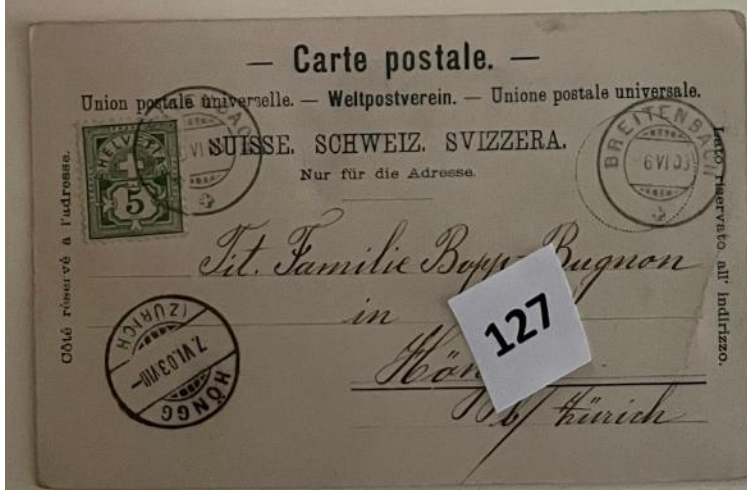 — Carte postale. —
Union postale universelle. — Weltpostverein. — Unione postale universale.
SUISSE. SCHWEIZ. SVIZZERA.
Nur für die Adresse.
Côté réservé à l'adresse.
Lato riservato all' indirizzo.
HELVETIA
5
BREITENBACH
6 VI 03
Tit. Familie Bopp-Bugnon
in
b/ Zürich
127
(ZÜRICH)
7. VI. 03 VIII—
HÖNGG